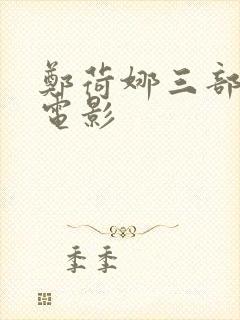 鄭荷娜三部
電影
季季